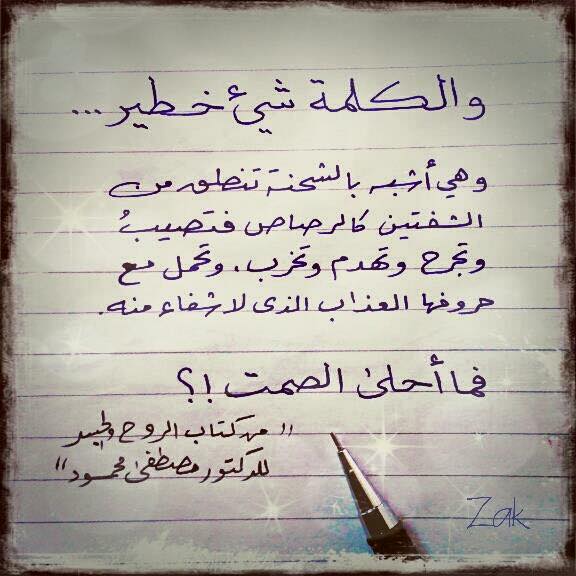 والكلمة شيئ خطير...
وهي أشبه بالشحنة تنطلق من
الشفتين كالرصاص فتصيبُ
وتجرح وتهدم وتخرب، وتحمل مع
حروفها العذاب الذى لا شفاء منه.
فما أحلى الصمت !؟
"من كتاب الروح والجسد
للدكتور مصطفى محمود"
Zak